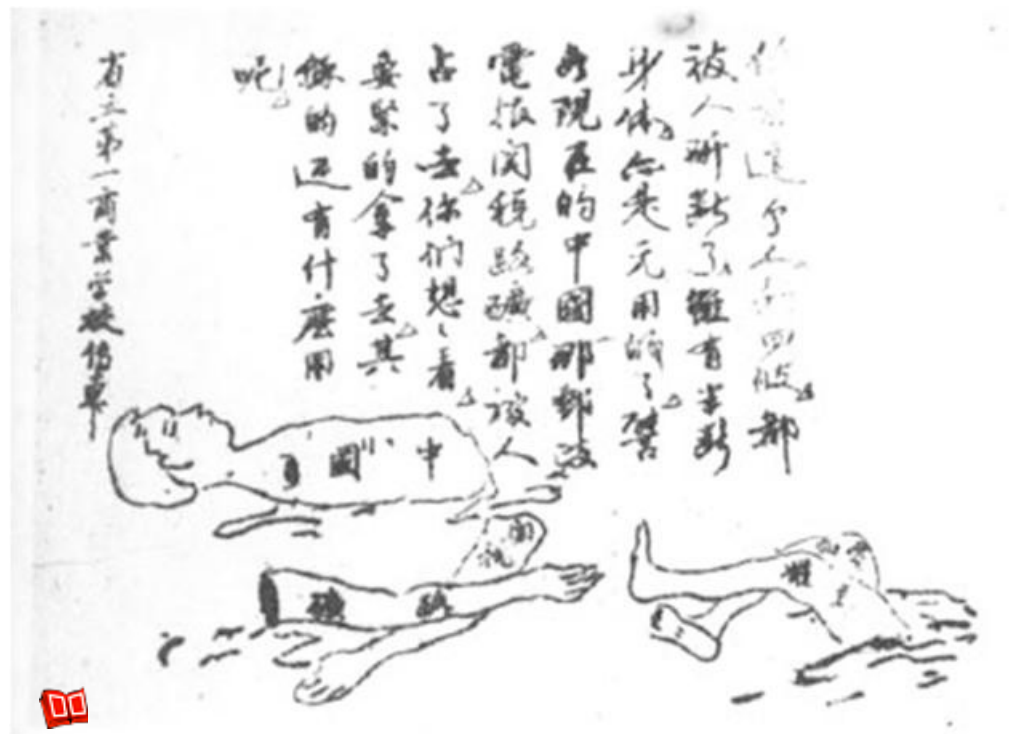 這个人的四肢都
被人斫断了雖有半断
身体也是无用的了譬
如現在的中國那郵政
電报関税路礦都被人
占了去你们想、看
要紧的拿了去其
馀的还有什麽用
呢
省立第一商業学校传单
中國
関税
路礦